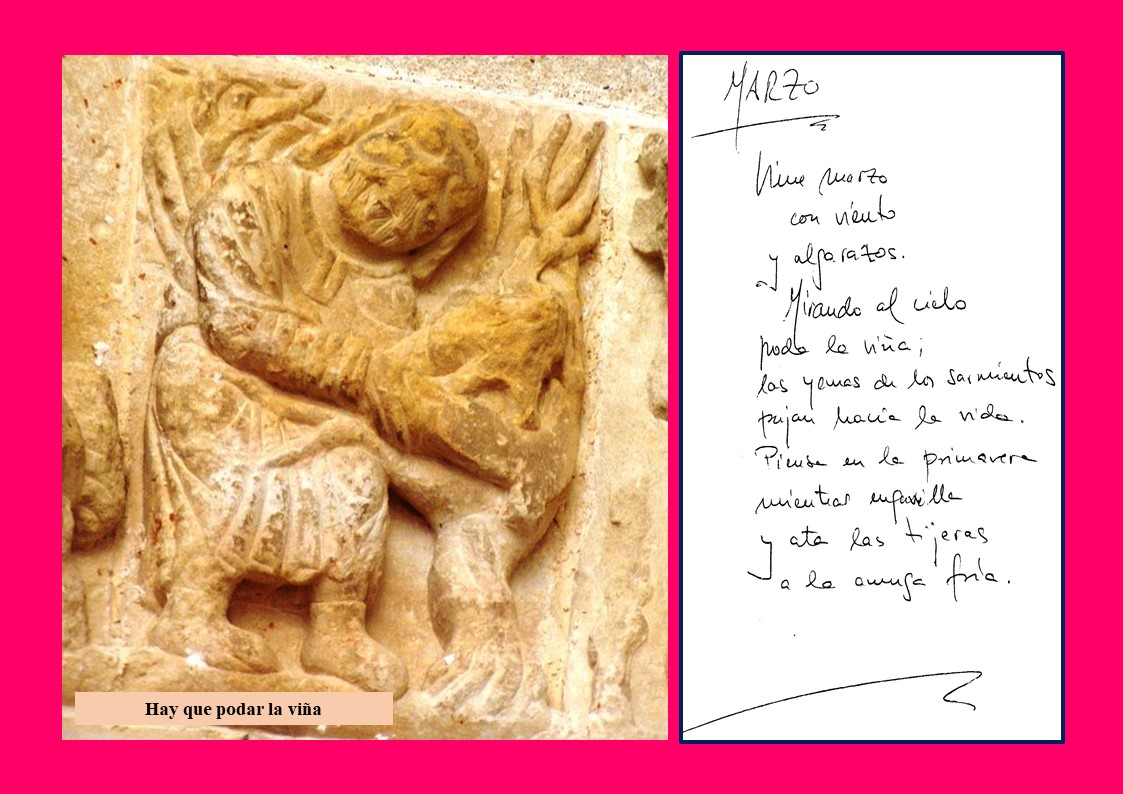 Hay que podar la viña
MARZO
Viene marzo
con viento
y algarazos.
Mirando al cielo
poda la viña;
las yemas de los sarmientos
pujan hacia la vida.
Piensa en la primavera
mientras engavilla
y ata las tijeras
a la amuga fría.